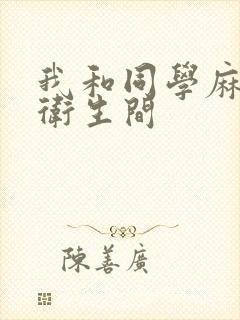 我和同學麻
衛生間
陳善廣